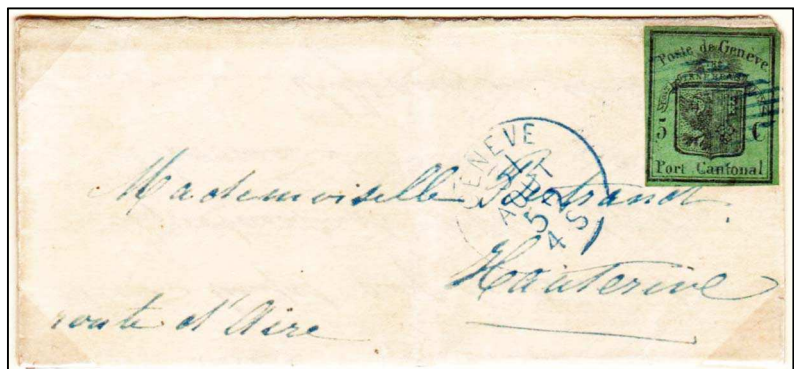 Poste de Genève
5 C
Port Cantonal
GENEVE
31
AOUT
52
4 S
Mademoiselle
Hauterive
route d'Aïre